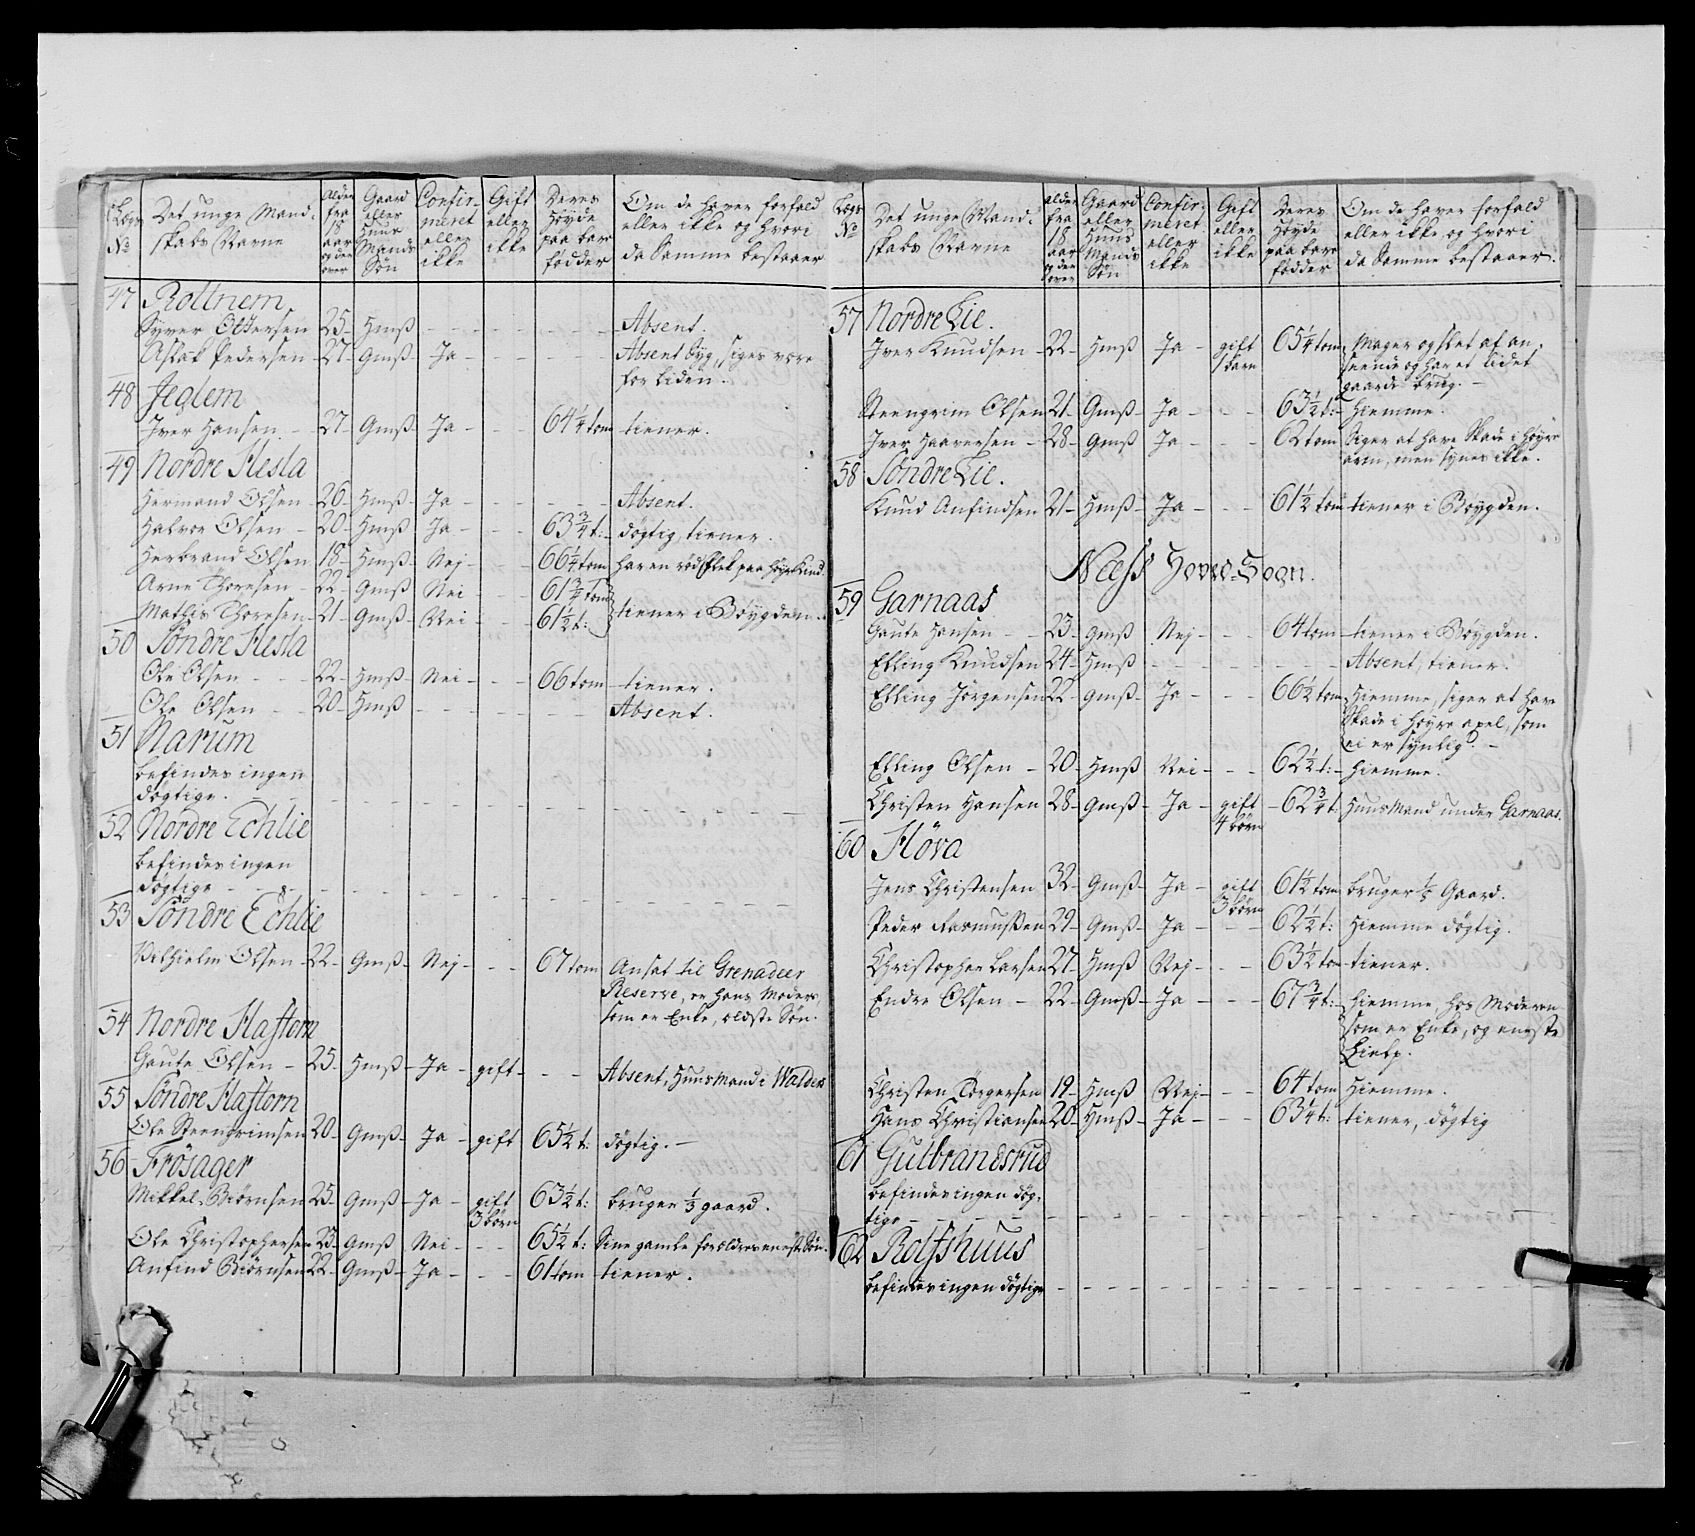 Lægs No | Det unge Mand-skabs Navne | Alder fra 18 aar og der over | Gaard eller Huus Mands Søn | Confir-meret eller ikke | Gift eller ikke | Deres Høyde paa bare fødder | Om de haver forfald eller ikke og hvori da Samme bestaaer
47 Roltnem
Syver Ottersen 25 - Hmß - - - - - - Absent.
Aslak Pedersen - 27 - Gmß - Ja - - - - Absent syg, siges være
for liden.
48 Jeglem
Iver Hansen - 27 - Gmß - Ja - - - 64 1/4 tom - tiener.
49 Nordre Hesla
Hermand Olsen - 26 - Hmß - Ja - - - - - Absent.
Halvor Olsen - 20 - Hmß - Ja - - - 63 3/4 t: - døgtig, tiener.
Herbrand Olsen 18 - Hmß - Nej - - - 66 1/4 tom har en rød Flek paa Høyre Kind.
Arne Thoresen - 22 - Gmß - Nei - - - 61 3/4 tom
Mathis Thoresen - 21 - Gmß - Nei - - - 61 1/2 t: tiener i Bøygden.
50 Søndre Hesla
Ole Olsen - - 22 - Hmß - Nei - - - 66 tom - tiener.
Ole Olsen - - 20 - Hmß - - - - - - Absent.
51 Narum
befindes ingen
døgtige. - - - - - -
52 Nordre Echlie
befindes ingen
døgtige - - - - - -
53 Søndre Echlie
Vilhielm Olsen - 22 - Gmß - Nej - - - 67 tom Ansat til Grenadeer
Reserve, er hans Moders,
som er Enke, eldste Søn.
54 Nordre Haftorn
Gaute Olsen - 25 - Hmß - Ja - gift - - - Absent, Huusmand i Walders
55 Søndre Haftorn
Ole Steengrimsen 20 - Gmß - Ja - gift 65 1/2 t: døgtig. -
56 Frøsager
Mikkel Biørnsen 25 - Gmß - Ja - gift 3 børn 63 1/2 t: bruger 1/3 gaard.
Ole Christophersen 23 - Gmß Nei - - - 65 1/2 t: Sine gamle forældres eneste Søn.
Anfind Biørnsen 22 - Gmß - Ja - - - 61 tom tiener.
Lægs No | Det unge Mand-skabs Navne | alder fra 18 aar og der over | Gaard eller Huus Mands Søn | Confir-meret eller ikke | Gift eller ikke | Deres Høyde paa bare fødder | Om de haver forfald eller ikke og hvori da Samme bestaaer.
57 Nordre Lie.
Iver Knudsen - 22 - Hmß Ja - gift 1 barn 65 1/4 tom Mager og slet af an-
seende og har et lidet
gaarde brug. -
Steengrim Olsen 21 - Gmß - Ja - - - 63 1/2 t: - Hiemme.
Iver Haaversen - 28 - Gmß Ja - - - 62 tom Siger at have Skade i Høyre
arm, men synes ikke.
58 Søndre Lie.
Knud Anfindsen 21 - Hmß - Ja - - - 61 1/2 tom tiener i Bøygden.
Næss Hoved-Sogn.
59 Garnaas
Gaute Hansen - - 23 - Gmß Nej - - - 64 tom - tiener i Bøygden.
Elling Knudsen 24 - Hmß - - - - - - Absent, tiener.
Elling Jørgensen 22 Gmß - Ja - - - 66 1/2 tom Hiemme, siger at have
Skade i Høyre axel, som
ei er synlig. -
Elling Olsen - 20 - Hmß Nei - - - 62 1/2 t: - Hiemme.
Christen Hansen 28 - Gmß - Ja - gift 4 børn - 62 3/4 t. Huusmand under Garnaas.
60 Høva
Jens Christensen 32 - Gmß - Ja - gift 3 børn 61 1/2 tom bruger 1/3 Gaard.
Peder Rasmußen 29 - Gmß - Ja - - - 62 1/2 t: Hiemme døgtig.
Christopher Larsen 27 - Hmß Nej - - - 63 1/2 tom tiener.
Endre Olsen - 22 - Gmß - Ja - - - 67 3/4 t: - hiemme hos Moderen
som er Enke, og eneste
Hielp.
Christen Torgersen 19 - Hmß Nej - - - 64 tom Hiemme.
Hans Christiansen 20 - Hmß - Ja - - - 63 1/4 t: tiener, døgtig
61 Gulbrandsrud
befindes ingen døg-
tige - - - - - -
62 Rolfshuus
befindes ingen døgtige - - - - - -